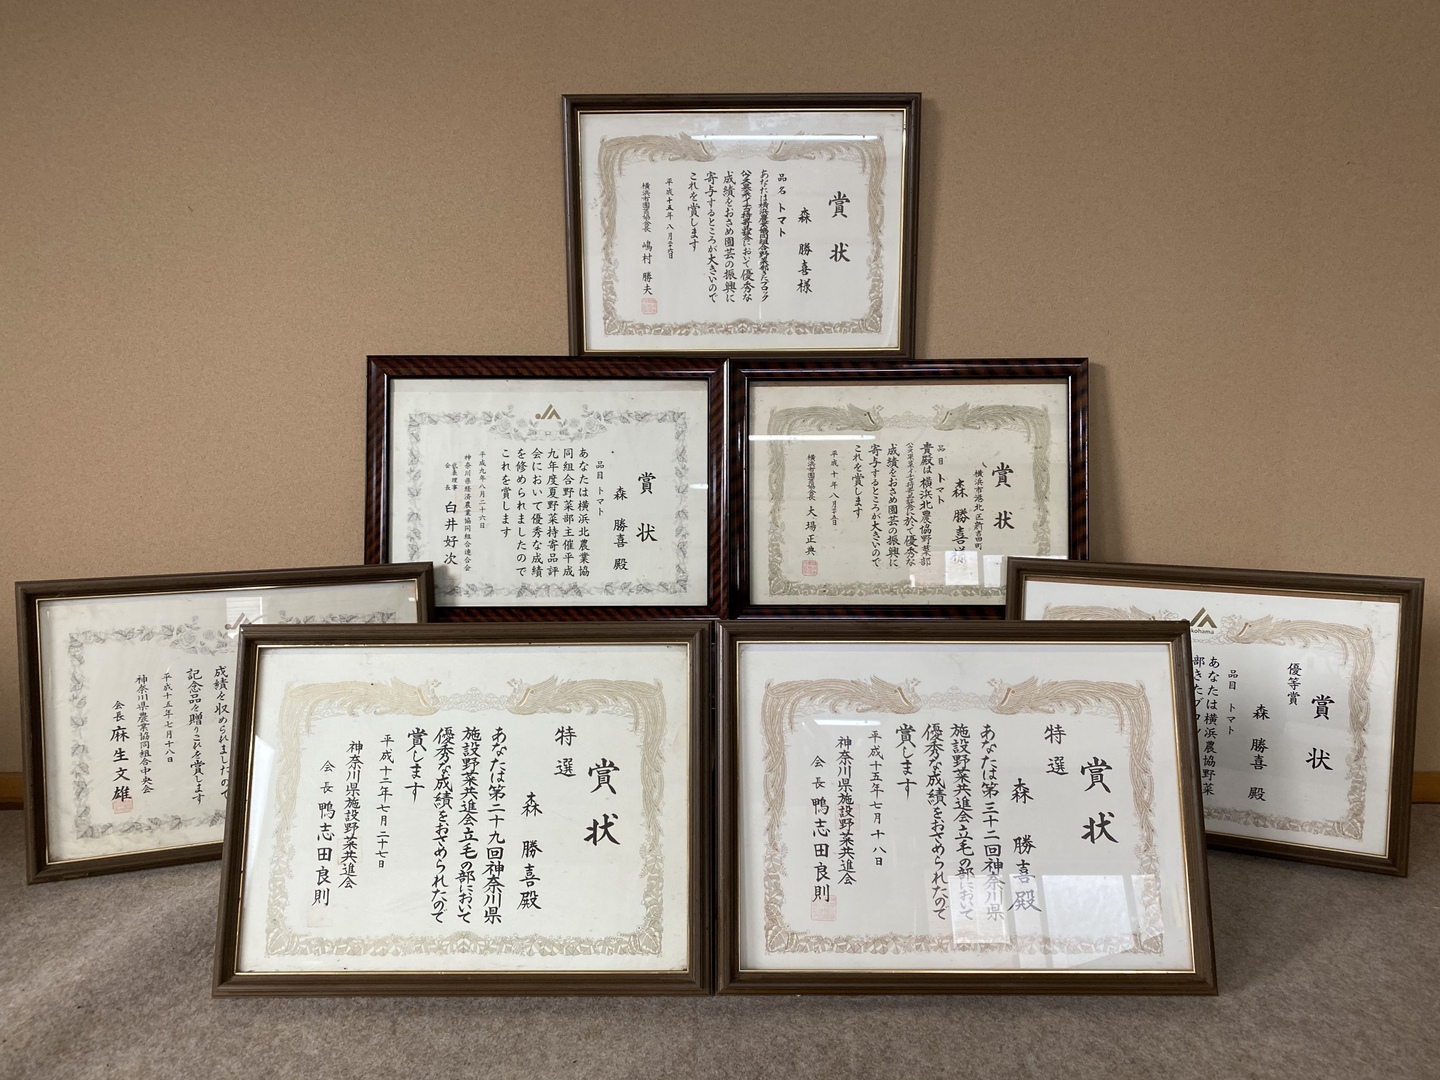 賞状
森勝喜様
品名 トマト
あなたは横浜農業協同組合野菜部きたブロック
において優秀な
成績をおさめ園芸の振興に
寄与するところが大きいので
これを賞します
平成十五年八月
嶋村勝夫
賞状
森勝喜殿
品目 トマト
あなたは横浜北農業協
同組合野菜部主催平成
九年度夏野菜持寄品評
会において優秀な成績
を修められましたので
これを賞します
平成九年八月二十六日
神奈川県経済農業協同組合連合会
代表理事
会長
白井好次
賞状
横浜市港北区新吉田町
森勝喜様
品目 トマト
貴殿は横浜北農協野菜部
に於て優秀な
成績をおさめ園芸の振興に
寄与するところが大きいので
これを賞します
平成十年八月
大場正典
成績を収められましたので
記念品を贈りこれを賞します
平成十五年七月十八日
神奈川県農業協同組合中央会
会長 麻生文雄
賞状
特選
森勝喜殿
あなたは第二十九回神奈川県
施設野菜共進会立毛の部において
優秀な成績をおさめられたので
賞します
平成十二年七月二十七日
神奈川県施設野菜共進会
会長 鴨志田良則
賞状
特選
森勝喜殿
あなたは第三十二回神奈川県
施設野菜共進会立毛の部において
優秀な成績をおさめられたので
賞します
平成十五年七月十八日
神奈川県施設野菜共進会
会長 鴨志田良則
賞状
優等賞
森勝喜殿
品目 トマト
あなたは横浜農協野菜
部きたブロッ